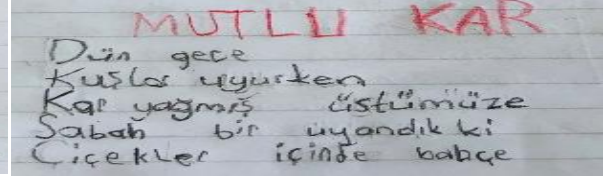 MUTLU KAR
Dün gece
Kuşlar uyurken
Kar yağmış üstümüze
Sabah bir uyandık ki
Çiçekler içinde bahçe